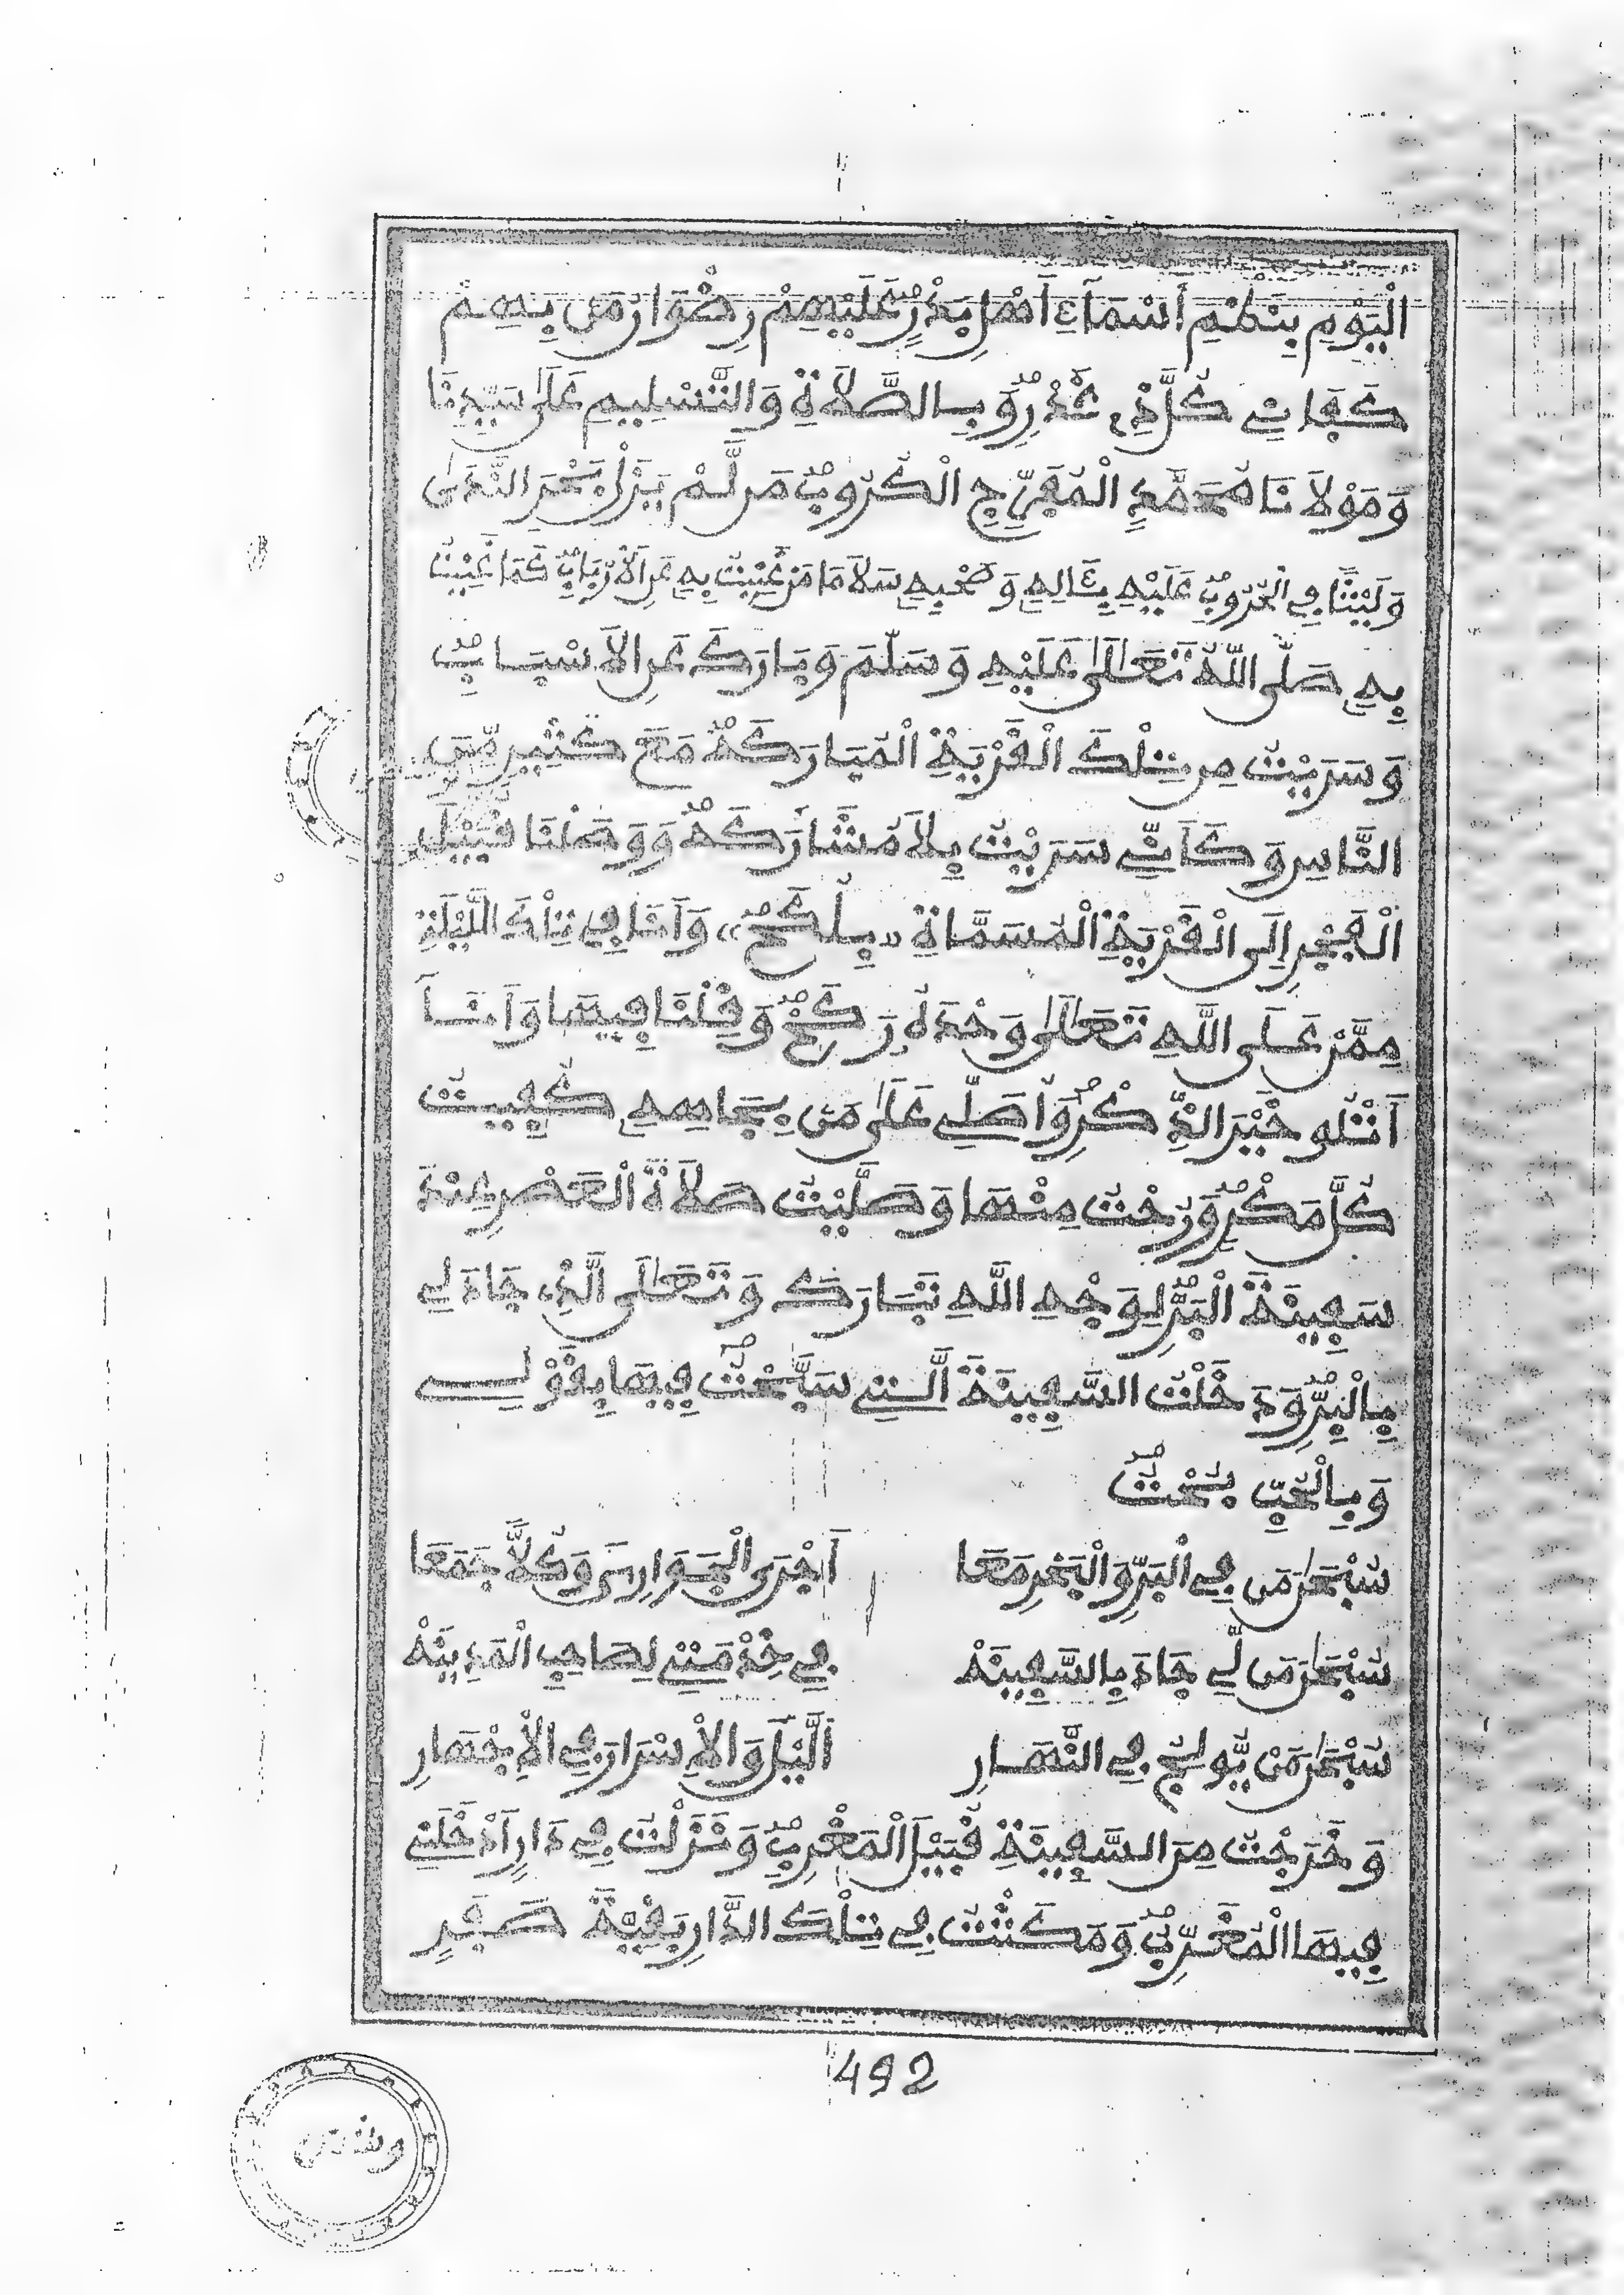 الْيَوْمِ بِنَظْمِ أَسْمَآءِ اَهْلِ بَدْرٍ عَلَيْهِمْ رِضْوَانُ مَن بِهِمْ
كَفَانِے كُلَّ ذِے غَدْرٍ وَبِالصَّلَاةِ وَالتَّسْلِيمِ عَلَىٰ سَيِّدِنَا
وَمَوْلَانَا مُحَمَّدٍ الْمُفَرِّجِ الْكُرُوبْ مَن لَّمْ يَزَلْ بَحْرَ النَّدَىٰ
وَلَيْثًا فِے الْحُرُوبْ عَلَيْهِ بِـَٔالِهِ وَصَحْبِهِ سَلَامَا مَنْ غَنِيتُ بِهِ عَنِ الَارْبَابْ كَمَا غَنِيتُ
بِهِ صَلَّى اللَّهُ تَعَالَىٰ عَلَيْهِ وَسَلَّمَ وَبَارَكَ عَنِ الَاسْبَابْ
وَسَرَيْتُ مِن تِلْكَ الْقَرْيَةِ الْمُبَارَكَهْ مَعَ كَثِيرٍ مِّنَ
النَّاسِ وَكَأَنِّے سَرَيْتُ بِلَا مُشَارَكَهْ وَوَصَلْنَا قُبَيْلَ
الْفَجْرِ إِلَى الْقَرْيَةِ الْمُسَمَّاةِ «بِلُكُحْ» وَأَنَا فِے تِلْكَ اللَّيْلَةِ
مِمَّنْ عَلَى اللَّهِ تَعَالَىٰ وَحْدَهُ رَكَحْ وَقِلْنَا فِيهَا وَأَنَا
أَتْلُو خَيْرَ الذِّكْرِ وَأُصَلِّے عَلَىٰ مَن بِجَاهِهِ كُفِيتُ
كُلَّ مَكْرٍ وَرُحْتُ مِنْهَا وَصَلَّيْتُ صَلَاةَ الْعَصْرِ عِنْدَ
سَفِينَةِ الْبَرِّ لِوَجْهِ اللَّهِ تَبَارَكَ وَتَعَالَى الَّذِے جَادَ لِے
بِالْبِرِّ وَدَخَلْتُ السَّفِينَةَ الَّتِے سَبَّحْتُ فِيهَا بِقَوْلِے
وَبِالْحُبِّ بُحْتُ
سُبْحَٰنَ مَن فِے الْبَرِّ وَالْبَحْرِ مَعَا أَجْرَى الْجَوَارِيَ وَكُلًّا جَمَعَا
سُبْحَٰنَ مَن لِّے جَادَ بِالسَّفِينَهْ فِے خِدْمَتِے لِصَاحِبِ الْمَدِينَهْ
سُبْحَٰنَ مَن يُّولِجُ فِے النَّهَارِ الَّيْلَ وَالْاِسْرَارَ فِے الْاِجْهَارِ
وَخَرَجْتُ مِنَ السَّفِينَةِ قُبَيْلَ الْمَغْرِبْ وَنَزَلْتُ فِے دَارٍ أَدْخَلَنِے
فِيهَا الْمُقَرِّبْ وَمَكَثْتُ فِے تِلْكَ الدَّارِ بَقِيَّةَ صَفَرٍ
492